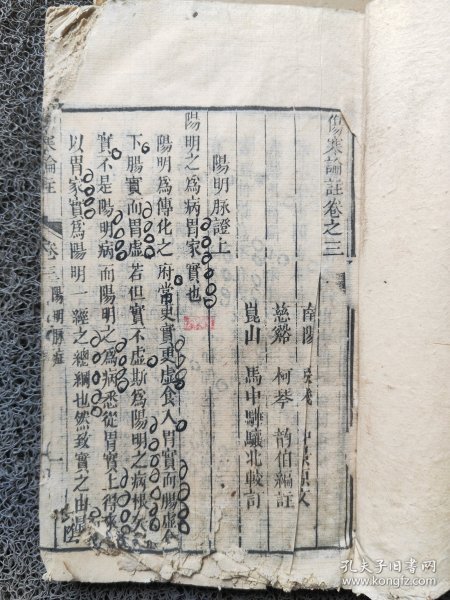 傷寒論註卷之三
南陽
慈谿 柯琴 韵伯編註
崑山 馬中驊驤北較訂
陽明脉證上
陽明之為病胃家實也
陽明為傳化之府當更實更虛食入胃實而腸虛食
下腸實而胃虛若但實不虛斯為陽明之病根矣
實不是陽明病而陽明之為病悉從胃實上得來
以胃家實為陽明一經之總綱也然致實之由最
寒論註 卷三 陽明脉證 一
孔夫子旧书网
www.kongfz.com